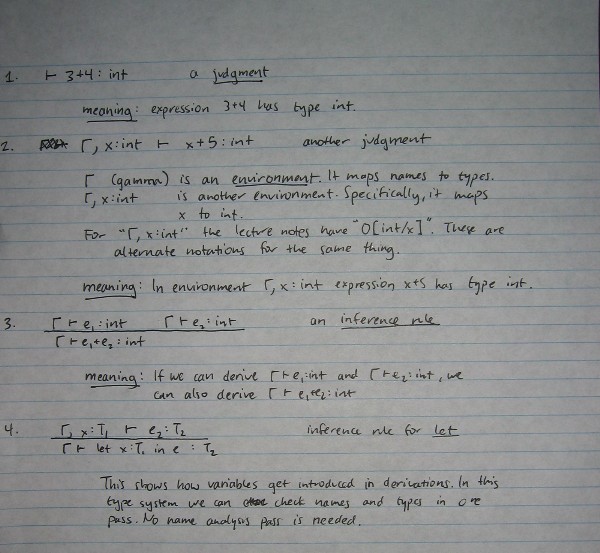 1. ⊢ 3+4 : int a judgment
meaning: expression 3+4 has type int.
2. Γ, x:int ⊢ x+5 : int another judgment
Γ (gamma) is an environment. It maps names to types.
Γ, x:int is another environment. Specifically, it maps
x to int.
For "Γ, x:int" the lecture notes have "O[int/x]". These are
alternate notations for the same thing.
meaning: In environment Γ, x:int expression x+5 has type int.
3. Γ ⊢ e₁ : int Γ ⊢ e₂ : int an inference rule
Γ ⊢ e₁+e₂ : int
meaning: If we can derive Γ ⊢ e₁:int and Γ ⊢ e₂:int, we
can also derive Γ ⊢ e₁+e₂ : int
4. Γ, x:T₁ ⊢ e₂ : T₂ inference rule for let
Γ ⊢ let x:T₁ in e : T₂
This shows how variables get introduced in derivations. In this
type system we can check names and types in one
pass. No name analysis pass is needed.